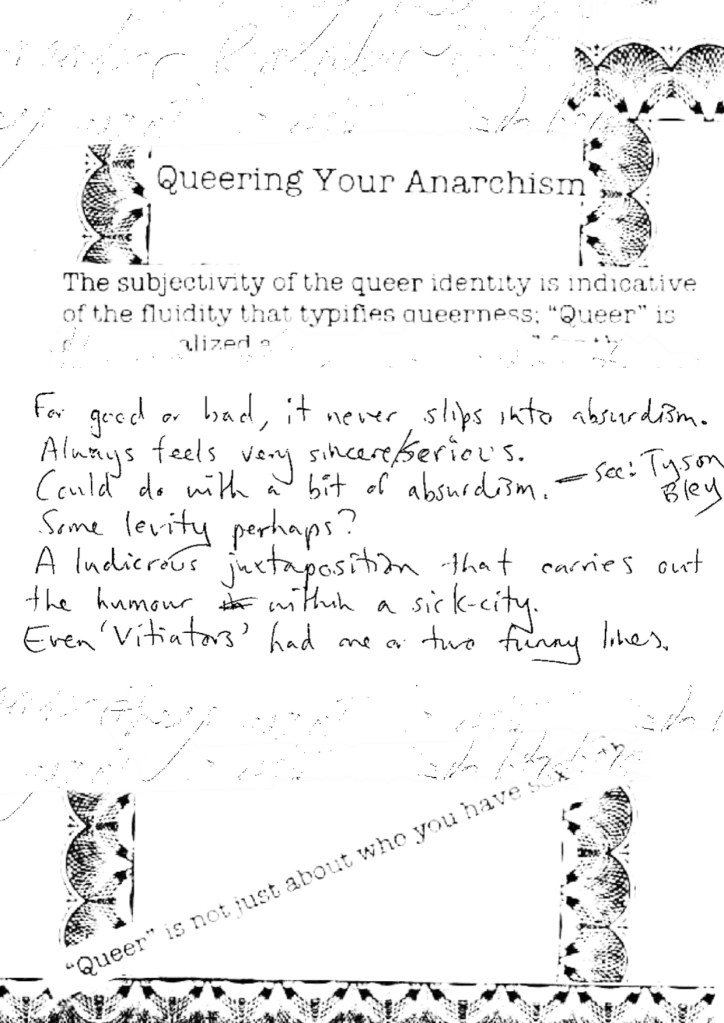 Queering Your Anarchism
The subjectivity of the queer identity is indicative
of the fluidity that typifies queerness; "Queer" is
alized
For good or bad, it never slips into absurdism.
Always feels very sincere/serious.
Could do with a bit of absurdism. — see: Tyson
Bley
Some levity perhaps?
A ludicrous juxtaposition that carries out
the humour within a sick-city.
Even 'Vitiators' had one or two funny lines.
"Queer" is not just about who you have sex